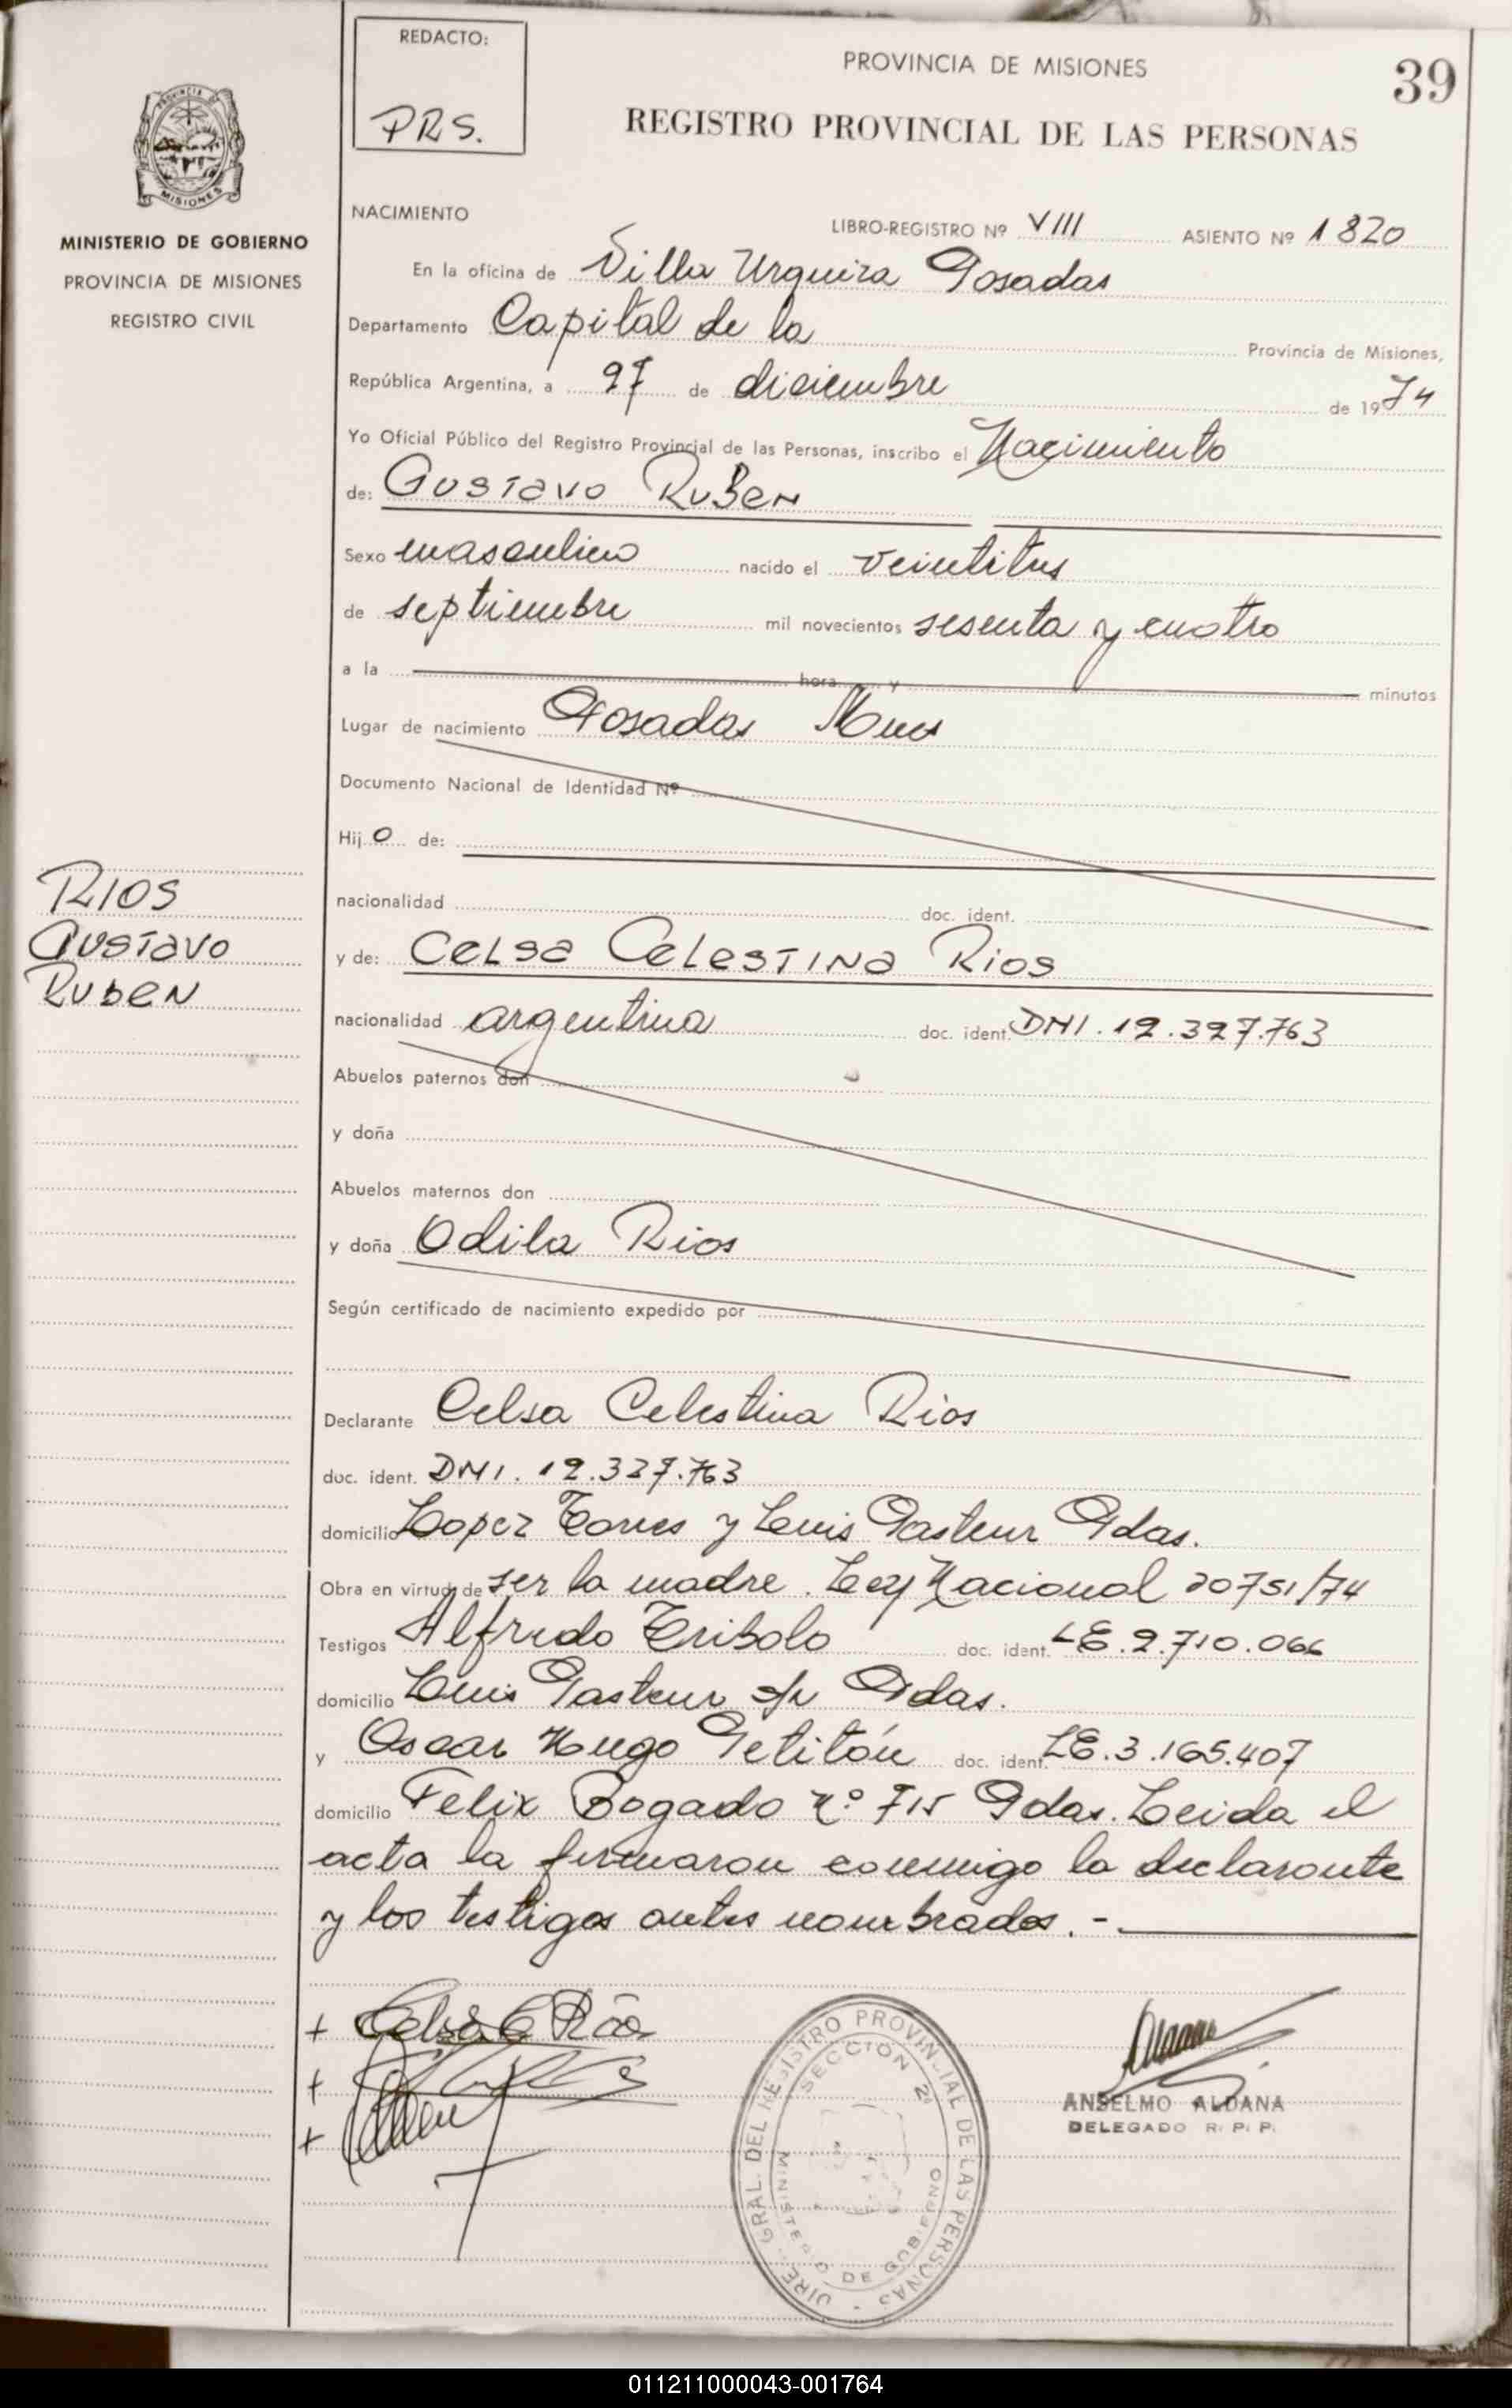 REDACTO:
PRS.
PROVINCIA DE MISIONES
39
REGISTRO PROVINCIAL DE LAS PERSONAS
MISIONES
MINISTERIO DE GOBIERNO
PROVINCIA DE MISIONES
REGISTRO CIVIL
NACIMIENTO
LIBRO-REGISTRO Nº VIII ASIENTO Nº 1820
En la oficina de Villa Urquiza Posadas
Departamento Capital de la Provincia de Misiones,
República Argentina, a 27 de diciembre de 1974
Yo Oficial Público del Registro Provincial de las Personas, inscribo el Nacimiento
de: Gustavo Ruben
Sexo masculino nacido el veintitres
de septiembre mil novecientos sesenta y cuatro
a la hora y minutos
Lugar de nacimiento Posadas Mnes
Documento Nacional de Identidad Nº
Hijo de:
nacionalidad doc. ident.
RIOS
Gustavo
Ruben
y de: Celsa Celestina Rios
nacionalidad argentina doc. ident. DNI. 12.327.763
Abuelos paternos don
y doña
Abuelos maternos don
y doña Odila Rios
Según certificado de nacimiento expedido por
Declarante Celsa Celestina Rios
doc. ident. DNI. 12.327.763
domicilio Lopez Torres y Luis Pasteur Pdas.
Obra en virtud de ser la madre. Ley Nacional 20751/74
Testigos Alfredo Tribolo doc. ident. LE.2.710.066
domicilio Luis Pasteur s/n Pdas.
y Oscar Hugo Petitón doc. ident. LE.3.165.407
domicilio Felix Bogado nº 715 Pdas. Leida el
acta la firmaron conmigo la declarante
y los testigos antes nombrados.-
+ Celsa C Rios
+
+
DIRE. GRAL. DEL REGISTRO PROVINCIAL DE LAS PERSONAS
SECCION 2ª
MINISTERIO DE GOBIERNO
ANSELMO ALDANA
DELEGADO R. P. P.
011211000043-001764